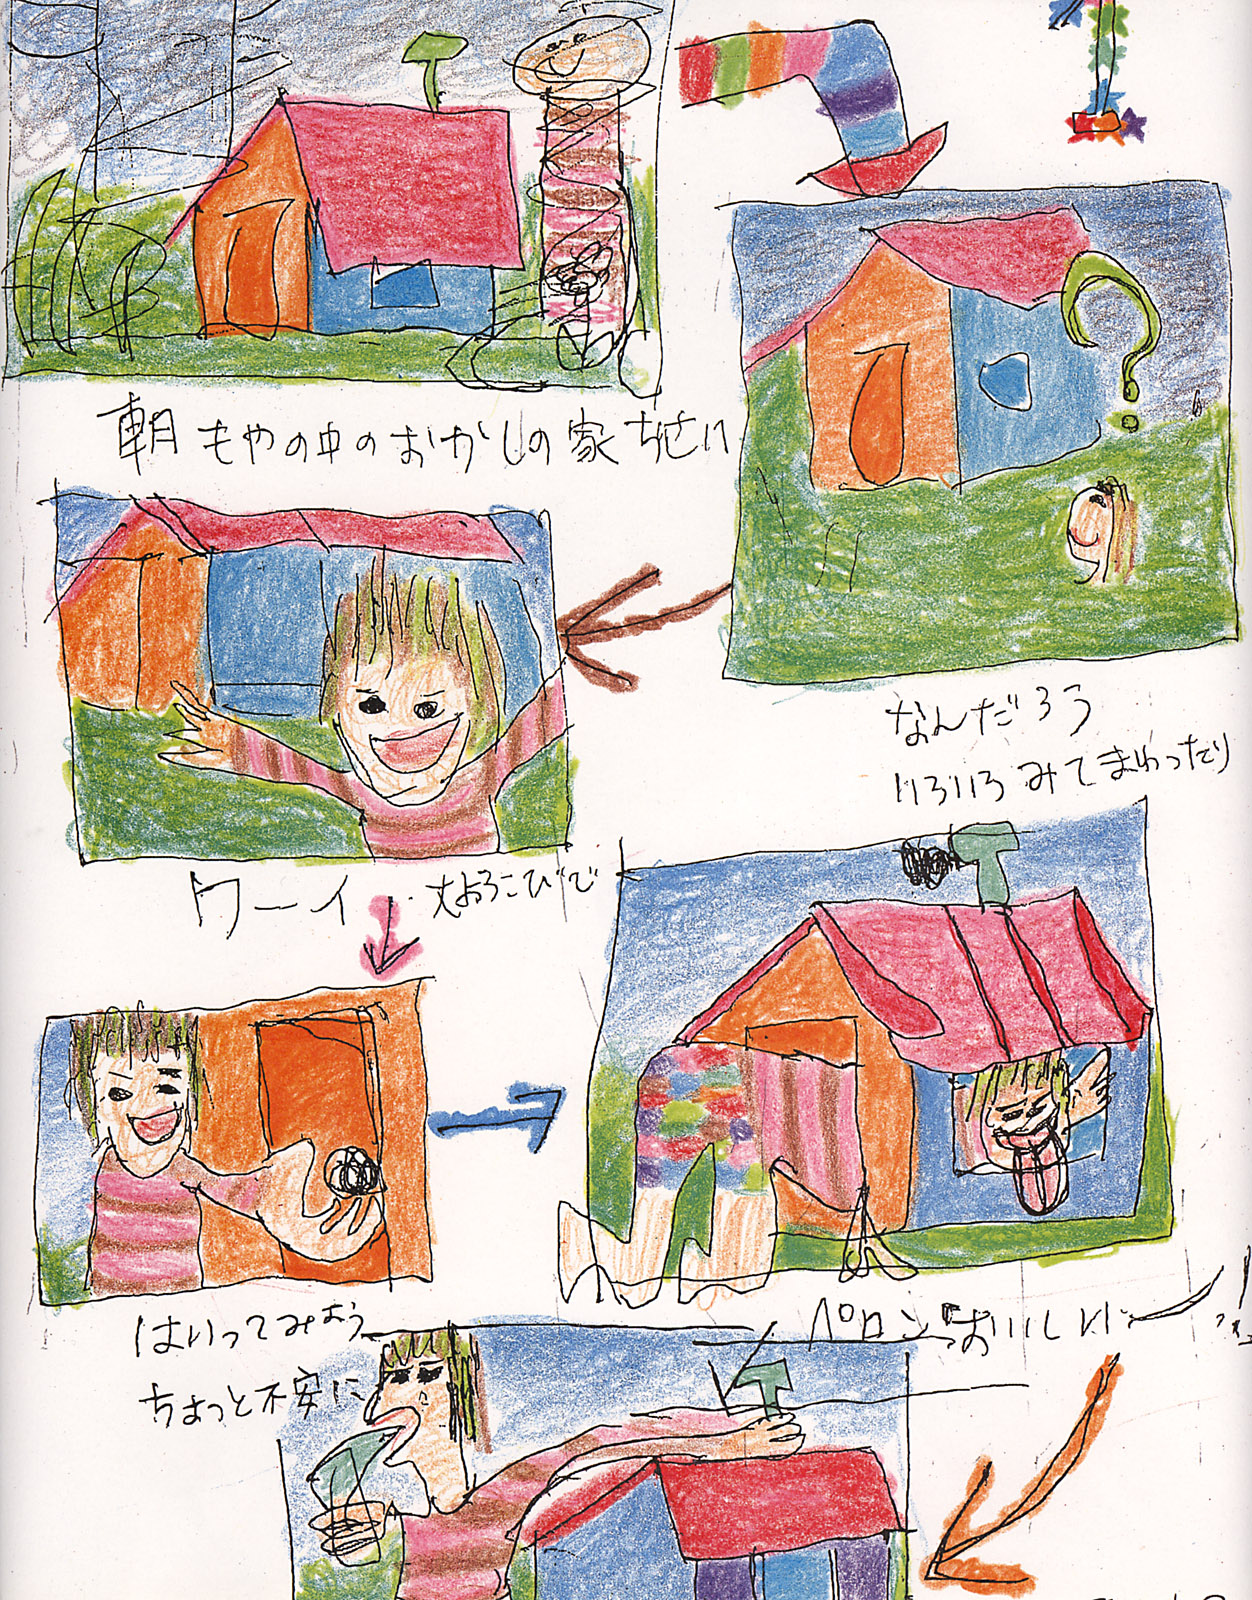 朝 もやの中のおかしの家
なんだろう
いろいろ みてまわったり
ワーイ 大よろこびで
はいってみよう
ちょっと不安に
ペロン おいしい